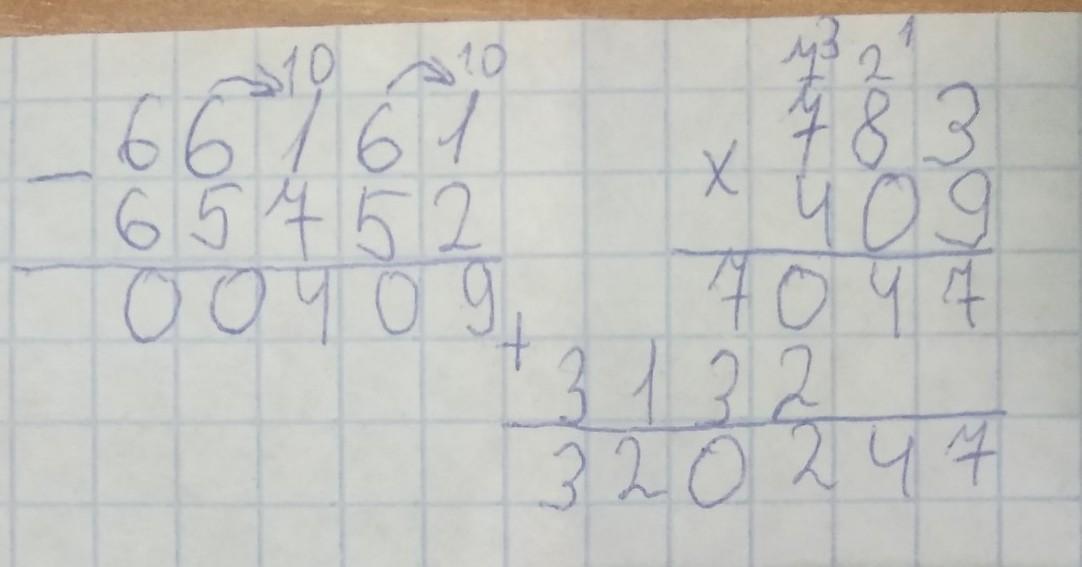 10 10
66161
- 65752
00409
7³ 2¹
783
x 409
7047
+ 3132
320247